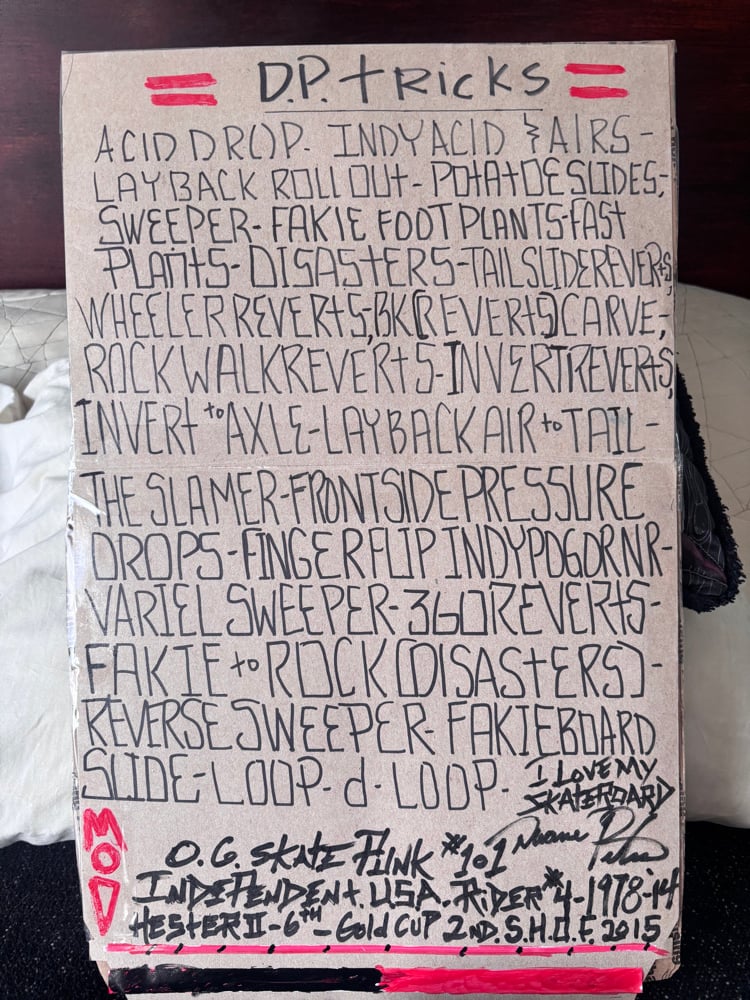 D.P. tRicks
ACID DROP. INDY ACID & AIRS -
LAYBACK ROLL OUT - POTATOE SLIDES,
SWEEPER - FAKIE FOOT PLANTS - FAST
PLANTS - DISASTERS - TAILSLIDE REVERTS,
WHEELER REVERTS, BK (REVERTS) CARVE,
ROCK WALK REVERTS - INVERT REVERTS,
INVERT to AXLE - LAYBACK AIR to TAIL -
THE SLAMER - FRONTSIDE PRESSURE
DROPS - FINGERFLIP INDY POGO RNR -
VARIEL SWEEPER - 360 REVERTS -
FAKIE to ROCK (DISASTERS) -
REVERSE SWEEPER - FAKIE BOARD
SLIDE - LOOP - d - LOOP -
I LOVE MY
SKATEBOARD
MOD
O.G. SKATE PUNK #101 Duane Peters
INDEPENDENT. U.S.A. RIDER #4 - 1978-14
HESTER II - 6TH - GOLD CUP 2ND. S.H.O.F. 2015